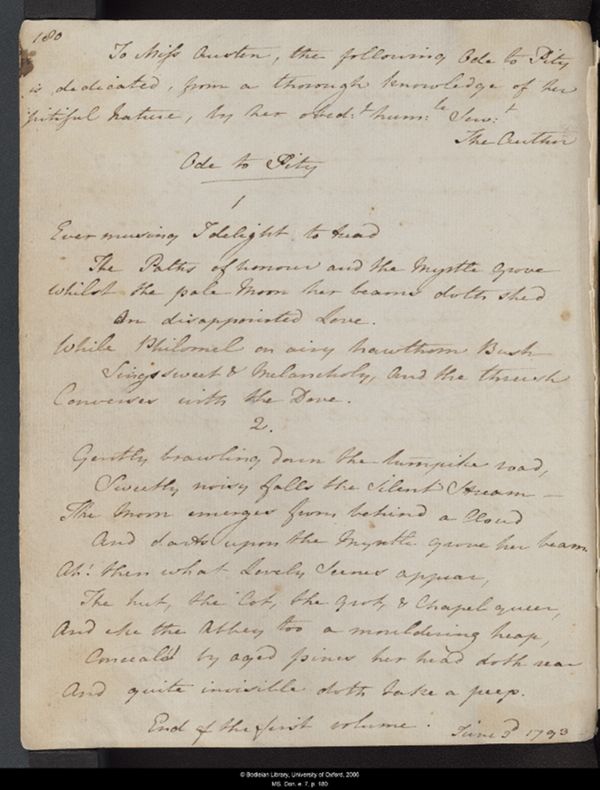 180
To Miss Austen, the following Ode to Pity
is dedicated, from a thorough knowledge of her
pitiful Nature, by her obed:t hum:le Serv:t
The Author
Ode to Pity
1
Ever musing I delight to tread
The Paths of honour and the Myrtle Grove
Whilst the pale Moon her beams doth shed
On disappointed Love.
While Philomel on airy hawthorn Bush
Sings sweet & Melancholy, And the thrush
Converses with the Dove.
2.
Gently brawling down the turnpike road,
Sweetly noisy falls the Silent Stream—
The Moon emerges from behind a Cloud
And darts upon the Myrtle Grove her beam.
Ah! then what Lovely Scenes appear,
The hut, the Cot, the Grot, & Chapel queer,
And eke the Abbey too a mouldering heap,
Conceal'd by aged pines her head doth rear
And quite invisible doth take a peep.
End of the first volume.
June 3d 1793
© Bodleian Library, University of Oxford, 2006
MS. Don. e. 7, p. 180